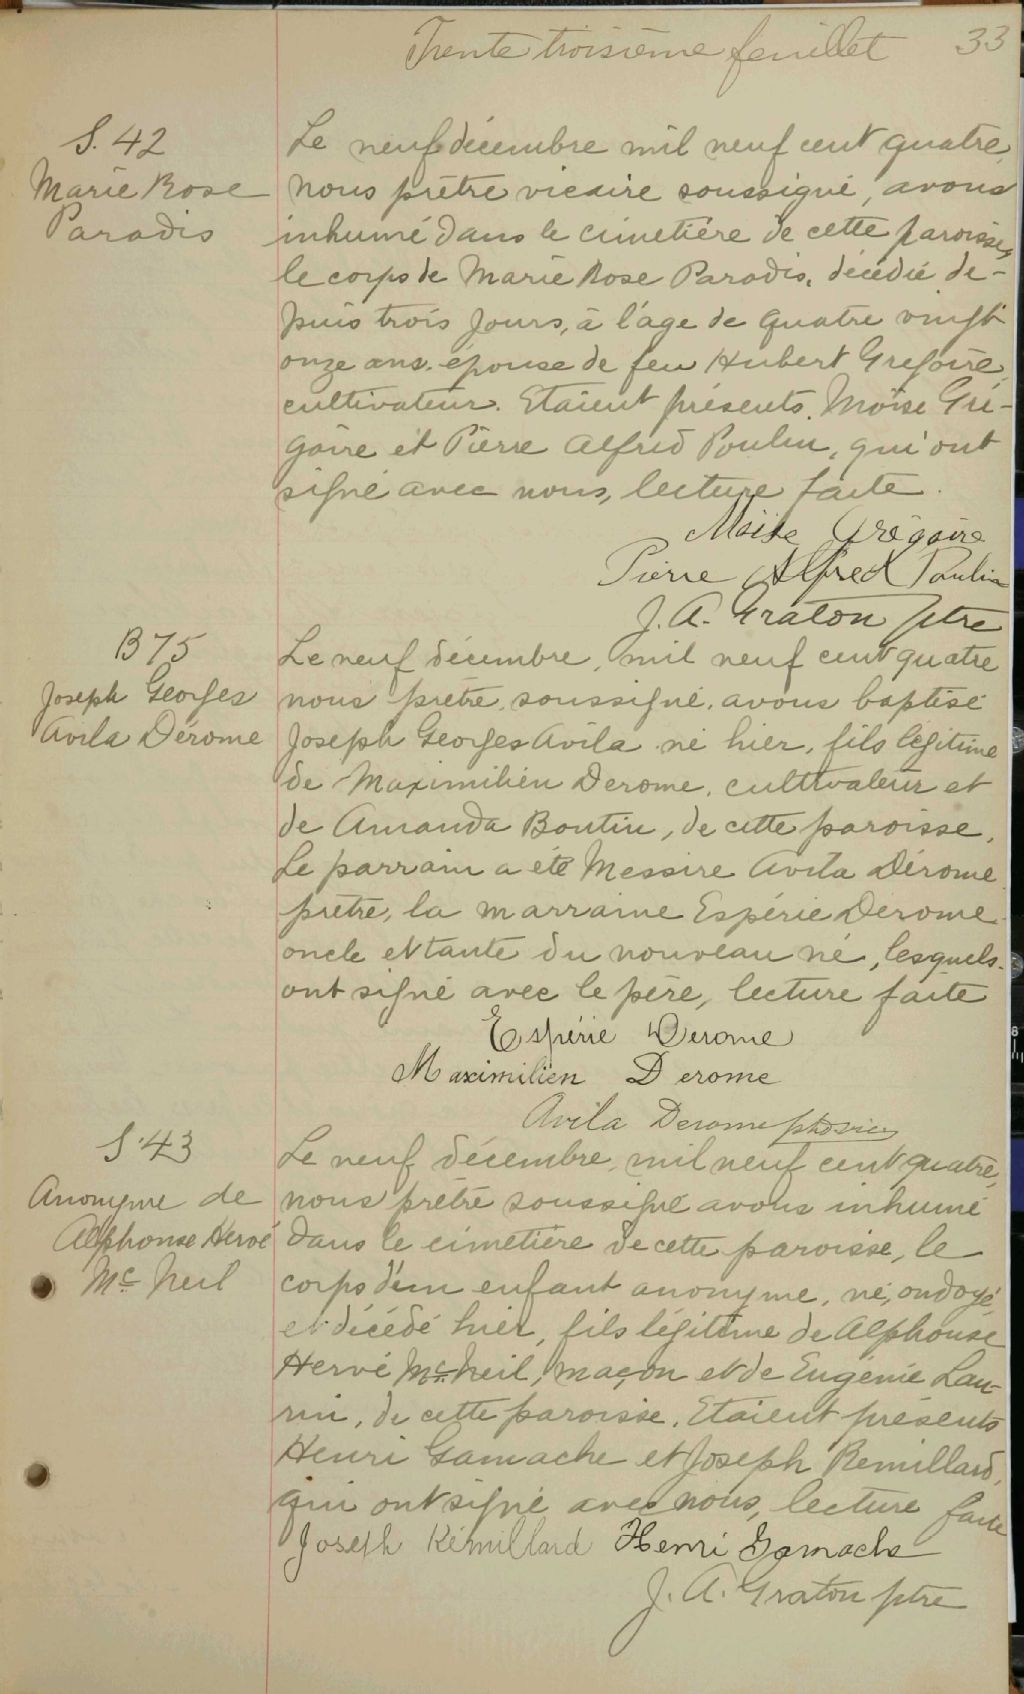 Trente troisième feuillet 33
S. 42
Marie Rose
Paradis
Le neuf décembre mil neuf cent quatre,
nous prêtre vicaire soussigné, avons
inhumé dans le cimetière de cette paroisse,
le corps de Marie Rose Paradis, décédée de-
puis trois jours, à l'âge de quatre vingt
onze ans. épouse de feu Hubert Gregoire,
cultivateur. Etaient présents, Moïse Gré-
goire et Pierre Alfred Poulin, qui ont
signé avec nous, lecture faite.
Moise Grégoire
Pierre Alfred Poulin
J. A. Graton ptre
B 75
Joseph Georges
Avila Dérome
Le neuf décembre, mil neuf cent quatre
nous prêtre soussigné, avons baptisé
Joseph Georges Avila né hier, fils légitime
de Maximilien Derome, cultivateur et
de Amanda Boutin, de cette paroisse.
Le parrain a été Messire Avila Dérome
prêtre, la marraine Espérie Derome
oncle et tante du nouveau né, lesquels
ont signé avec le père, lecture faite
Espérie Derome
Maximilien Derome
Avila Derome
S. 43
Anonyme de
Alphonse Hervé
Mc Neil
Le neuf décembre, mil neuf cent quatre,
nous prêtre soussigné avons inhumé
dans le cimetière de cette paroisse, le
corps d'un enfant anonyme, né, ondoyé,
et décédé hier, fils légitime de Alphonse
Hervé Mc Neil, maçon et de Eugénie Lau-
rin, de cette paroisse. Etaient présents
Henri Gamache et Joseph Remillard,
qui ont signé avec nous, lecture faite
Joseph Rémillard Henri Gamache
J. A. Graton ptre